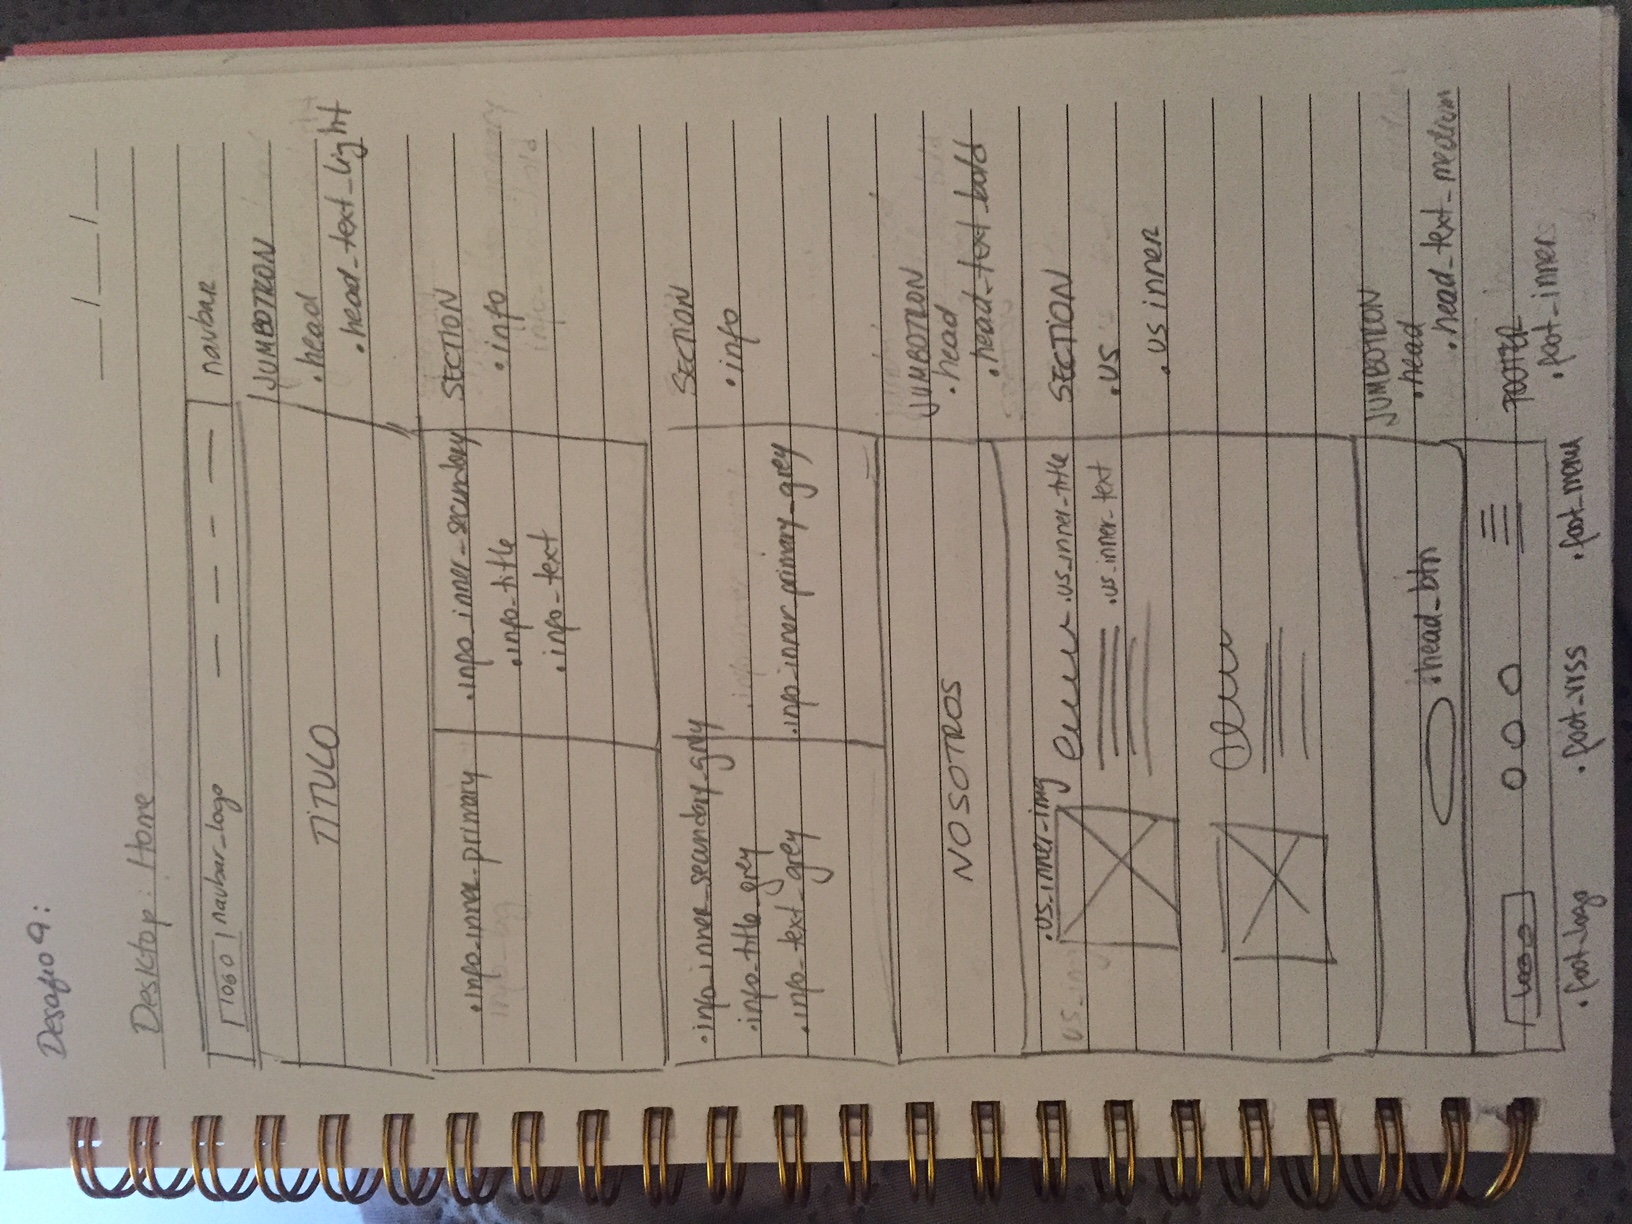 Desafío 9:
___/___/___
Desktop: Home
LOGO navbar_logo
navbar
TÍTULO
JUMBOTRON
.head
.head_text_light
.info_inner_primary
.info_inner_secundary
.info_title
.info_text
SECTION
.info
.info_inner_secundary_grey
.info_title_grey
.info_text_grey
.info_inner_primary_grey
SECTION
.info
NOSOTROS
JUMBOTRON
.head
.head_text_bold
.us_inner_img
.us_inner_title
.us_inner_text
SECTION
.us
.us inner
.head_btn
JUMBOTRON
.head
.head_text_medium
LOGO
FOOTER
.foot_inner
.foot_logo
.foot_rrss
.foot_menu